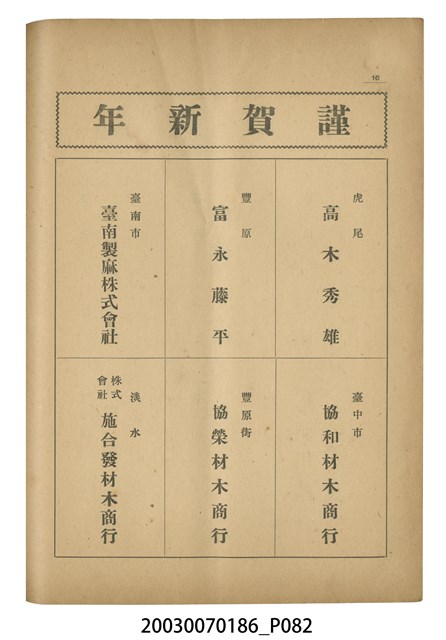 16
謹賀新年
虎尾
高木秀雄
豐原
富永藤平
臺南市
臺南製麻株式會社
臺中市
協和材木商行
豐原街
協榮材木商行
淡水
株式會社
施合發材木商行
20030070186_P082